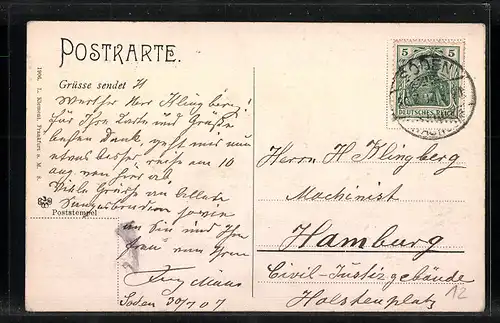 POSTKARTE.
Grüsse sendet H
Werther Herr Klingberg!
für Ihre Karte und Grüße
besten Dank, geht mir nun
etwas besser reise am 10
Aug von hier ab
Viele Grüße an alle
Sangesbrüder sowie
an Sie und Ihre
Frau von Ihrem
Soden 30/7 07
Poststempel
1906. L. Klement, Frankfurt a. M.
5 5
DEUTSCHES REICH
SODEN
Herrn H Klingberg
Machinist
Hamburg
Civil-Justizgebäude
Holstenplatz
12